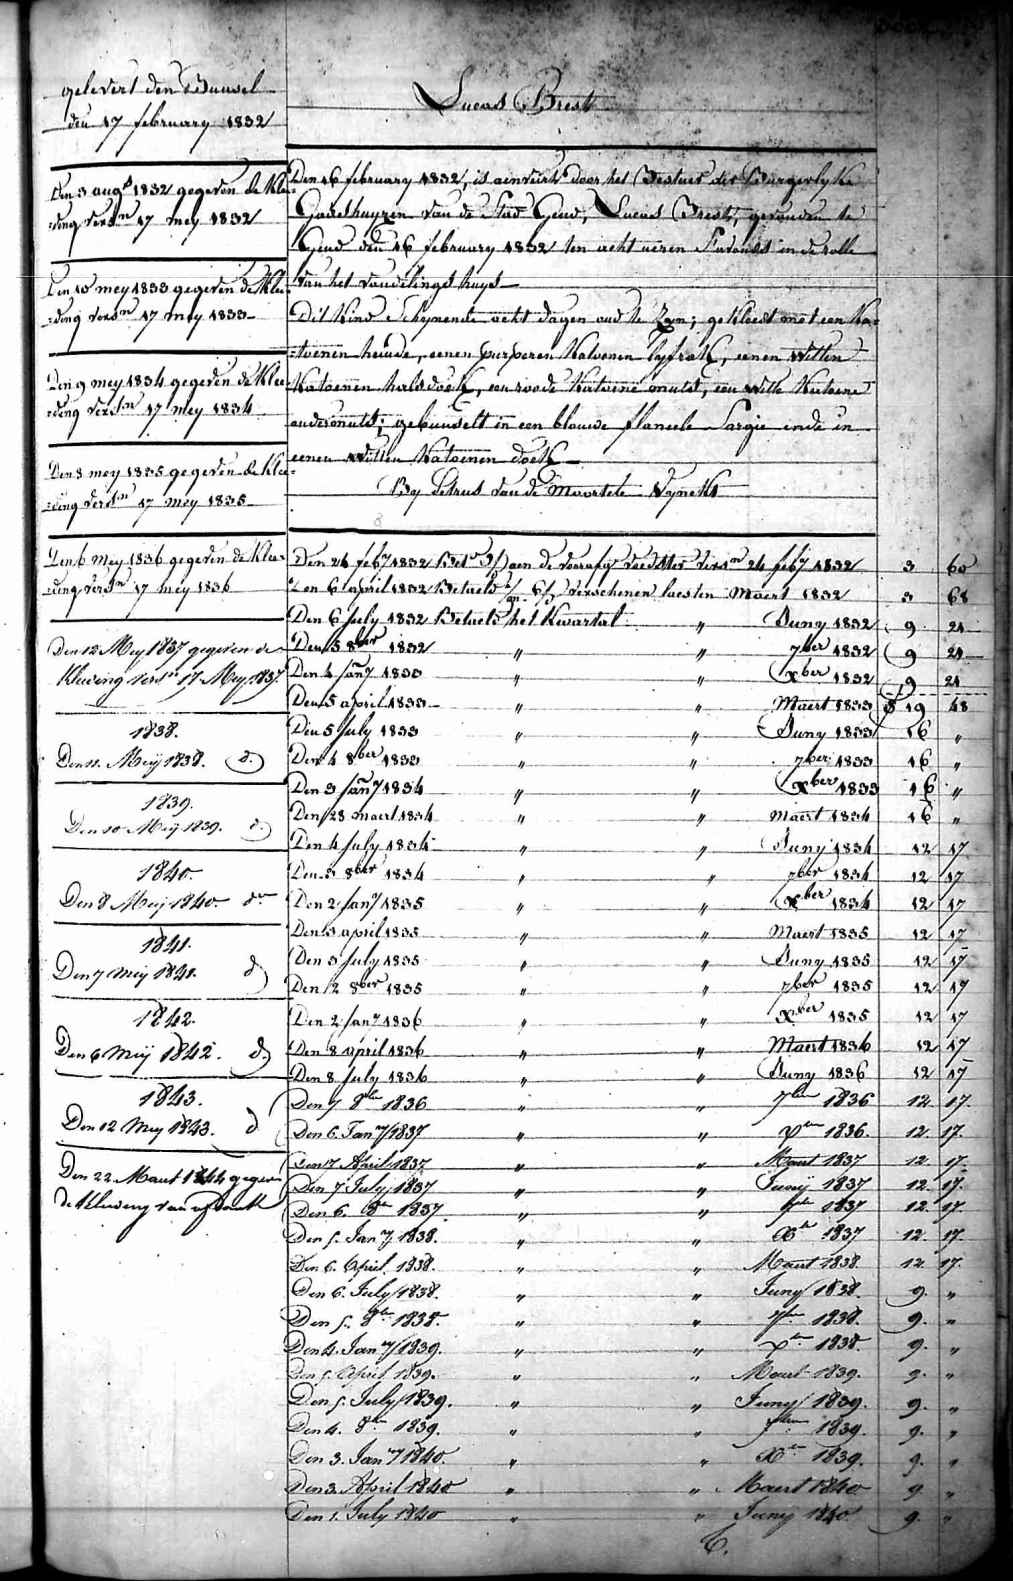 Lucas Brest
gelevert den Bunsel
den 17 february 1832
Den 3 augs 1832 gegeven de Klee=
=ding versn 17 mey 1832
Den 10 mey 1833 gegeven de Klee=
=ding versn 17 mey 1833
Den 9 mey 1834 gegeven de Klee=
=ding versn 17 mey 1834
Den 8 mey 1835 gegeven de Klee=
=ding versn 17 mey 1835
Den 6 mey 1836 gegeven de Klee=
=ding versn 17 mey 1836
Den 12 Mey 1837 gegeven de
Kleeding versn 17 Mey 1837
1838.
Den 11. Meij 1838. d.
1839.
Den 10 Meij 1839. d.
1840.
Den 8 Meij 1840. do
1841.
Den 7 Meij 1841. d
1842.
Den 6 Meij 1842. d
1843.
Den 12 Mey 1843. d
Den 22 Maert 1844 gegeven
de Kleeding van
Den 16 february 1832, is aenveird door het Bestuer der Burgerlyke
Godshuyzen van de Stad Gend, Lucas Brest, gevonden te
Gend den 16 february 1832 ten acht uren s'avonds in de rolle
van het vondelings huys
Dit Kind schynende acht dagen oud te zyn; gekleed met een Ka=
=toenen hemde, eenen purperen Katoenen lyfrok, eenen witten
Katoenen halsdoek, een roode Katoene muts, een witte Katoene
ondermuts; gebunselt in een blauwe flaneele Sargie ende in
eenen witten Katoenen doek
By Petrus van de Moortele
Den 24 feby 1832 aen de voedster versn 24 feby 1832 3 60
Den 6 april 1832 Betaeld verschenen laesten Maert 1832 3 68
Den 6 July 1832 Betaeld het Kwartal " Juny 1832 9 24
Den 5 8ber 1832 " " 7ber 1832 9 24
Den 4 Jany 1833 " " Xber 1832 9 24
Den 5 april 1833 " " Maert 1833 19 48
Den 5 July 1833 " " Juny 1833 16 "
Den 4 8ber 1833 " " 7ber 1833 16 "
Den 3 Jany 1834 " " Xber 1833 16 "
Den 28 maert 1834 " " Maert 1834 16 "
Den 4 July 1834 " " Juny 1834 12 17
Den 3 8ber 1834 " " 7ber 1834 12 17
Den 2 Jany 1835 " " Xber 1834 12 17
Den 3 april 1835 " " Maert 1835 12 17
Den 3 July 1835 " " Juny 1835 12 17
Den 2 8ber 1835 " " 7ber 1835 12 17
Den 2 Jany 1836 " " Xber 1835 12 17
Den 8 april 1836 " " Maert 1836 12 17
Den 8 July 1836 " " Juny 1836 12 17
Den 7 8ber 1836 " " 7ber 1836 12. 17.
Den 6. Jany 1837 " " Xber 1836. 12. 17.
Den 7 April 1837 " " Maert 1837 12 17.
Den 7 July 1837 " " Junij 1837 12. 17.
Den 6. 8br 1837. " " 7br 1837 12. 17.
Den 5. Jany 1838. " " Xbr 1837 12. 17.
Den 6. April. 1838. " " Maert 1838. 12 17.
Den 6. July 1838. " " Juny 1838. 9. "
Den 5. 8br 1838. " " 7br 1838. 9. "
Den 4. Jany 1839. " " Xbr 1838. 9. "
Den 5. April 1839. " " Maert 1839. 9. "
Den 5. July 1839. " " Juny 1839. 9. "
Den 4. 8br 1839. " " 7br 1839. 9. "
Den 3. Jany 1840. " " Xbr 1839. 9. "
Den 3. April 1840 " " Maert 1840 9 "
Den 1. July 1840 " " Junij 1840 9. "